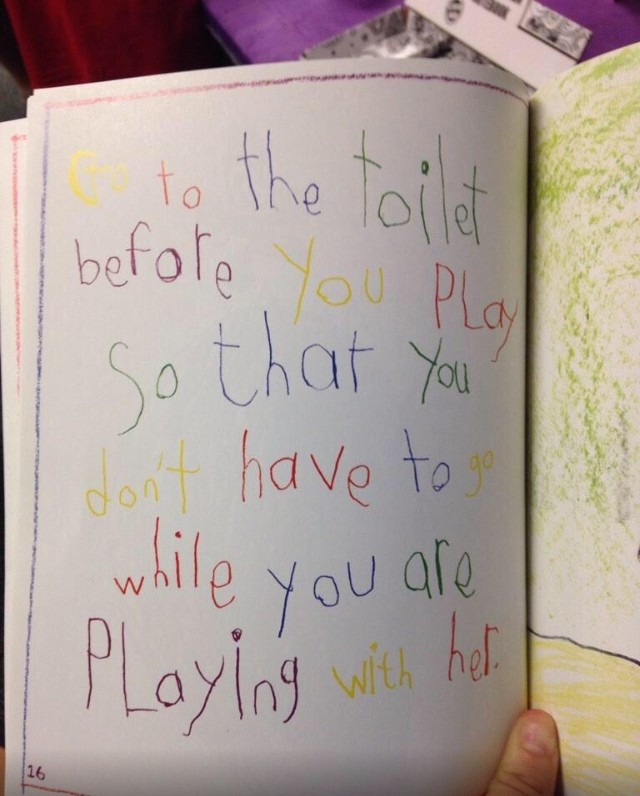 Go to the toilet
before you PLay
So that you
don't have to go
while you are
PLaying with her.
16